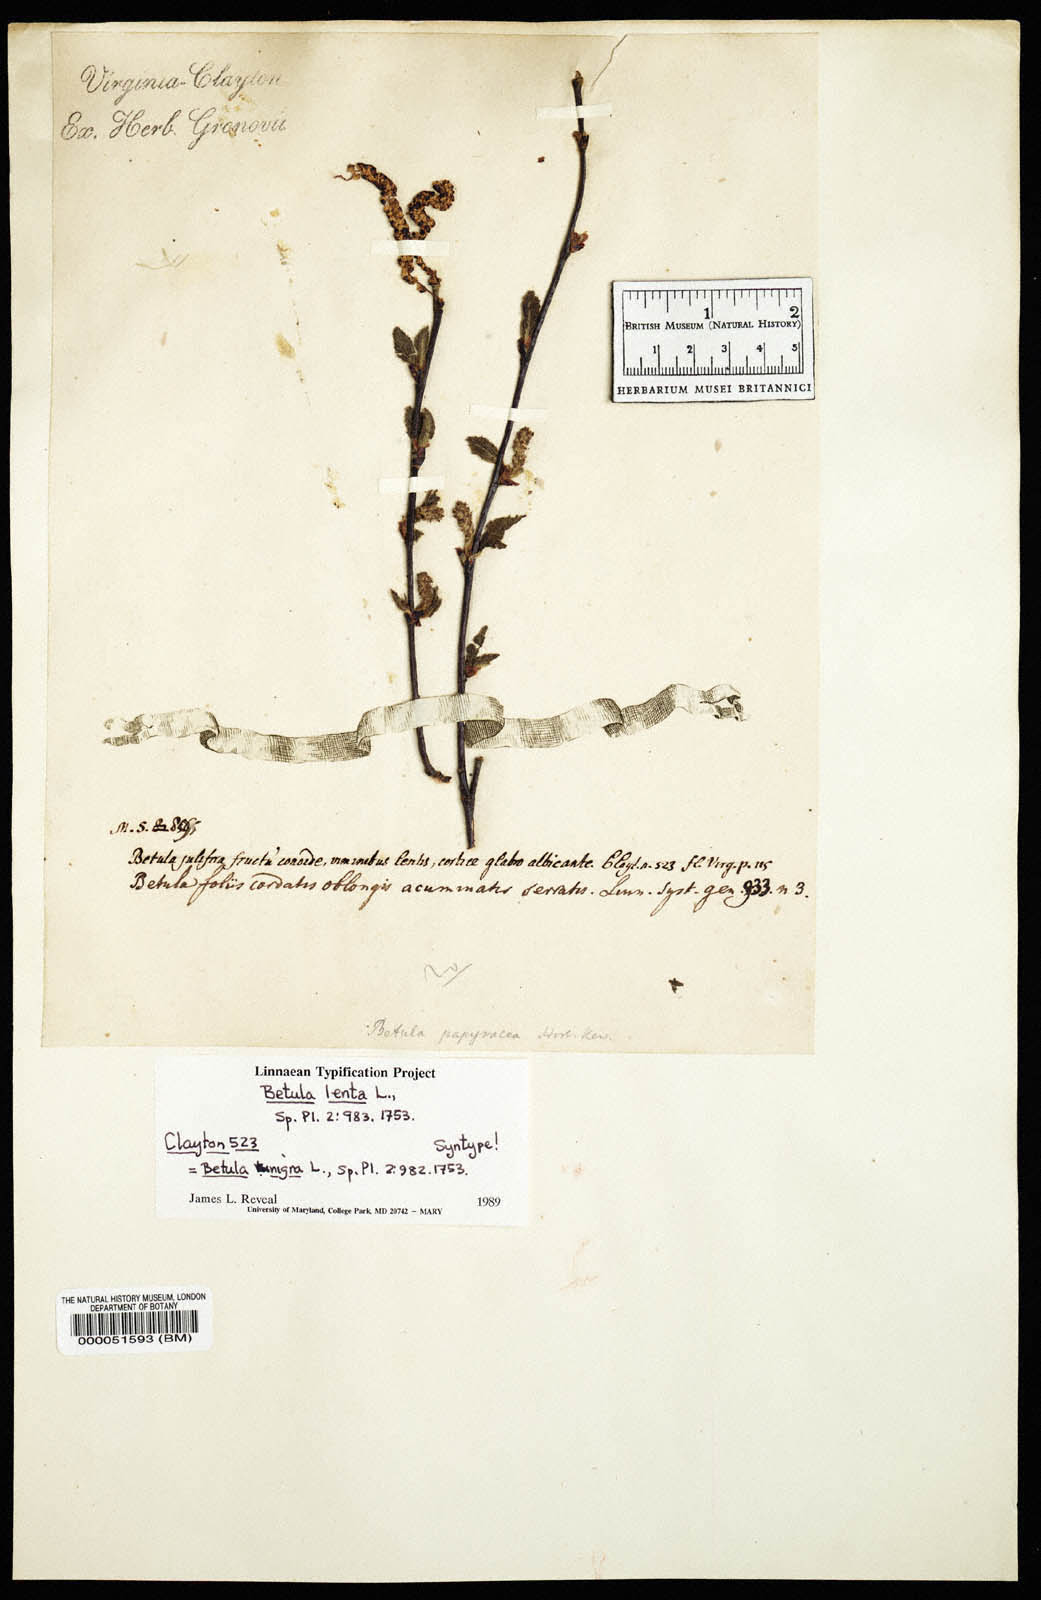 Virginia-Clayton
Ex. Herb. Gronovii
1 2
BRITISH MUSEUM (NATURAL HISTORY)
1 2 3 4 5
HERBARIUM MUSEI BRITANNICI
M. S.
Betula julifera fructu conoide, viminibus lentis, cortice glabro albicante. Clayt. n. 523 fl. Virg. p. 115
Betula foliis cordatis oblongis acuminatis serratis. Linn. Syst. gen. 933. n 3.
Betula papyracea Hort. Kew.
Linnaean Typification Project
Betula lenta L.,
Sp. Pl. 2: 983. 1753.
Clayton 523 Syntype!
= Betula nigra L., Sp. Pl. 2: 982. 1753.
James L. Reveal 1989
University of Maryland, College Park, MD 20742 – MARY
THE NATURAL HISTORY MUSEUM, LONDON
DEPARTMENT OF BOTANY
000051593 (BM)